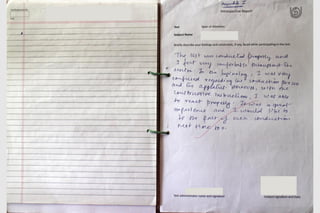 Appendix I
Introspective Report
Test
Span of Attention
Subject Name
Briefly describe your feelings and introspection, if any, faced while participating in the test.
The test was conducted properly and
I felt very comfortable throughout the
session. In the beginning, I was very
confused regarding the conduction process
and the apparatus. However, with the
instructions, I was able
to react properly. It was a great
experience and I would like to
be the part of such conduction
next time too.
Test administrator name and signature
Subject signature and date